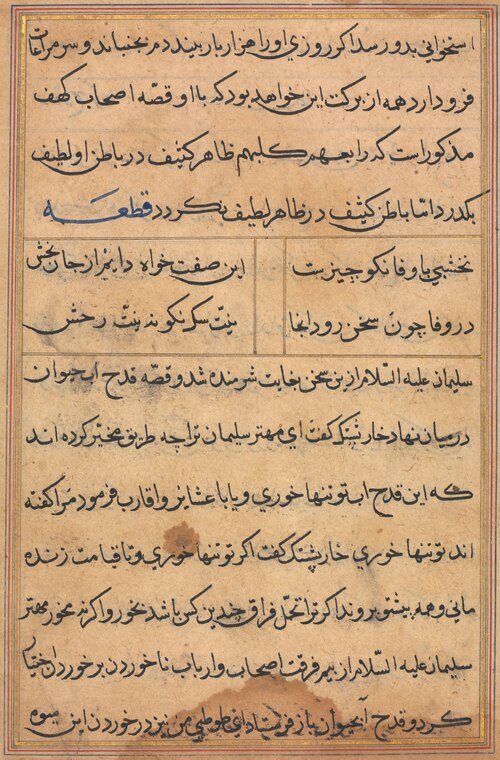 استخوانی بدو رسد اگر روزی او را هزار بار ببیند دم بجنباند و سر مراعات
فرود آرد همه از برکت این خواهد بود که با او قصّه اصحاب کهف
مذکور است که رابعهم کلبهم ظاهر کثیف در باطن او لطیف
بکدرد امّا باطن کثیف در ظاهر لطیف نکردد قطعه
نخشبی با وفا نکو چیزیست
این صفت خواه دایم از جان بخش
در وفا چون سخن رود اینجا
نیّت سک نکو نه نیّت رخش
سلیمان علیه السّلام ازین سخن بغایت شرمنده شد و قصّه قدح اب حیوان
در میان نهاد خارپشتک گفت ای مهتر سلیمان ترا چه طریق مخیّر کرده اند
که این قدح اب تو تنها خوری و یا با عشایر و اقارب فرمود مرا کفته
اند تو تنها خوری خارپشتک کفت اکر تو تنها خوری و تا قیامت زنده
مانی و همه پیش تو بروند اکر ترا تحمّل فراق چندین کس باشد بخور و اکرنه مخور مهتر
سلیمان علیه السّلام از بیم فرقت اصحاب و ارباب ناخوردن بر خوردن اختیار
کرد و قدح آبحیوان باز فرستاد ای طوطی من نیز در خوردن این میوه